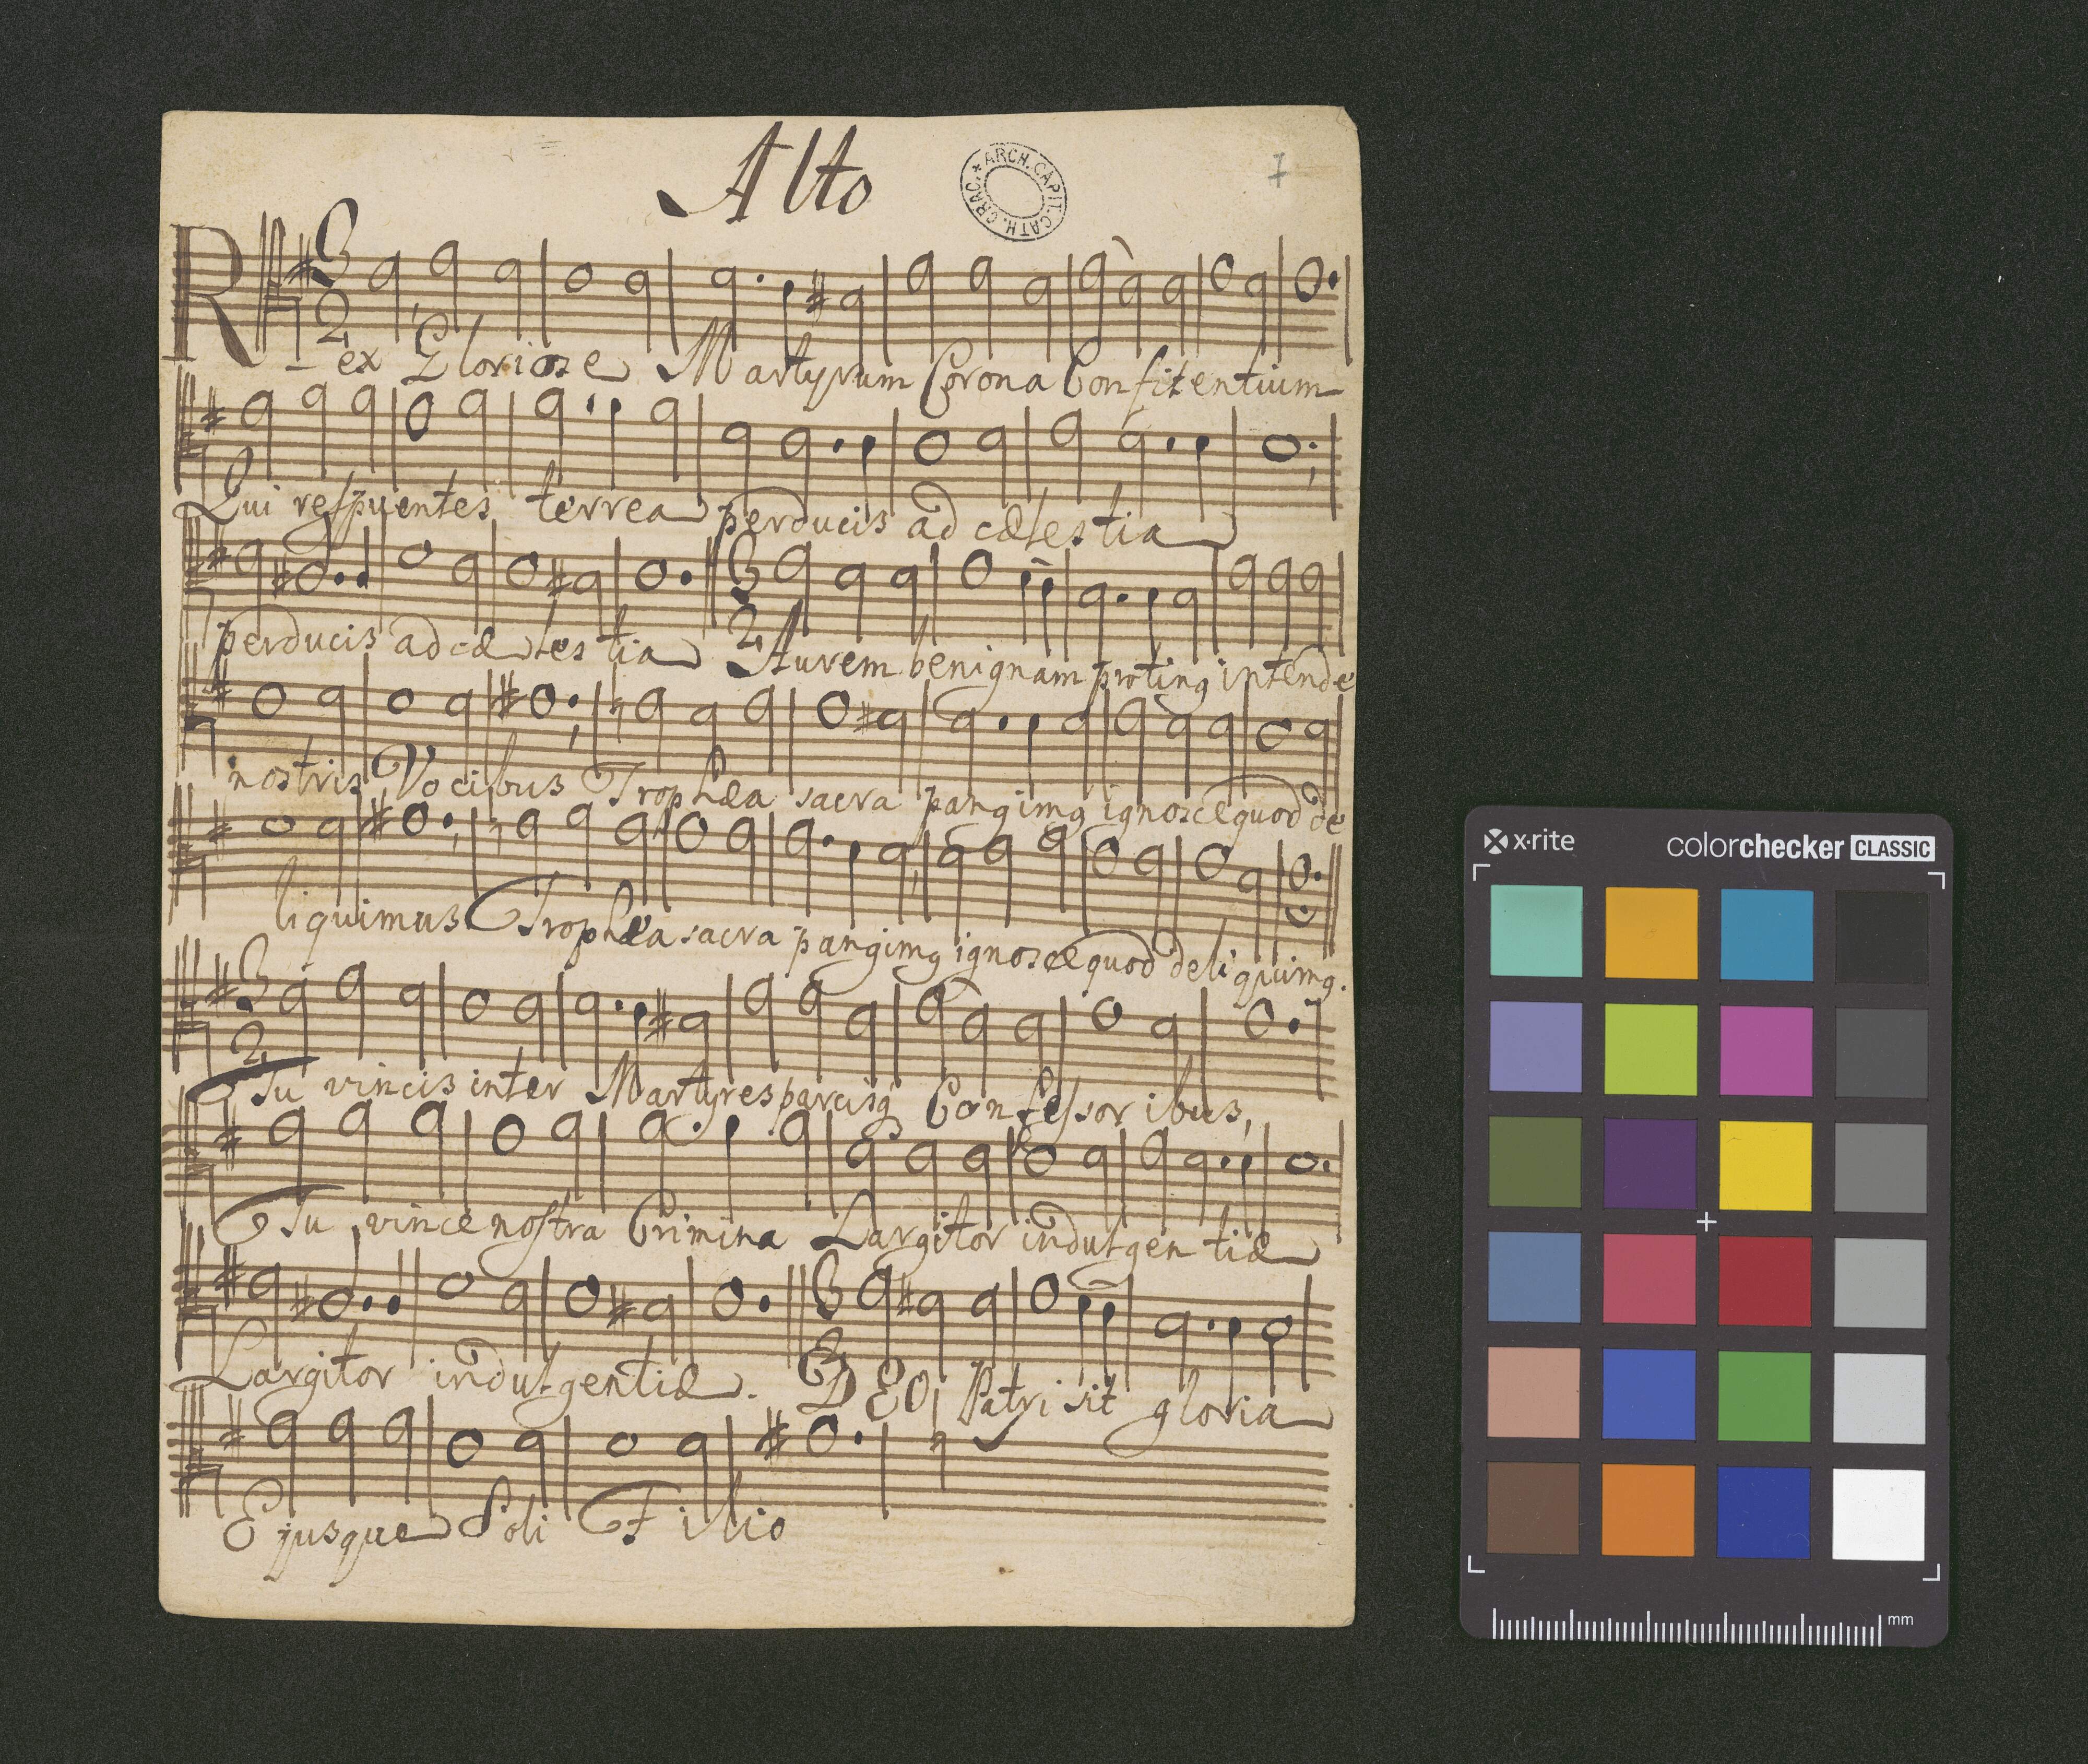 Alto
ARCH. CAPIT. CATH. CRAC.
7
3
2
Rex Gloriose Martyrum Corona Confitentium
Qui respuentes terrea perducis ad cælestia
3
2
perducis ad cælestia Aurem benignam proting intende
nostris Vocibus Trophæa sacra pangimg ignosce quod de
liquimus Trophæa sacra pangimg ignosce quod deliquimg.
3
2
Tu vincis inter Martyres parcisq Confessoribus,
Tu vince nostra Crimina Largitor indulgentiæ
3
2
Largitor indulgentiæ. DEO Patri sit gloria
Ejusque Soli Filio
x-rite colorchecker CLASSIC
mm